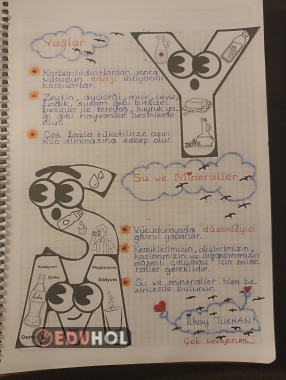 Yağlar
Karbonhidratlardan sonra
vücudun enerji ihtiyacını
karşılarlar.
Zeytin, ayçiçeği, mısır, ceviz,
fındık, susam gibi bitkisel
besinler ile tereyağ, kuyruk ya-
ğı gibi hayvansal besinlerde
olur.
Çok fazla tüketilirse aşırı
kilo alınmasına sebep olur.
Su ve Mineraller
Vücudumuzda düzenleyici
görevi yaparlar.
Kemiklerimizin, dişlerimizin,
kaslarımızın ve organlarımızın
düzenli çalışması için mine-
raller gereklidir.
Su ve mineraller tüm be-
sinlerde bulunur.
Kalsiyum
Magnezyum
Çinko
Sodyum
Demir
EDUHOL
İlkay TURHAN
Çok seviyorum...